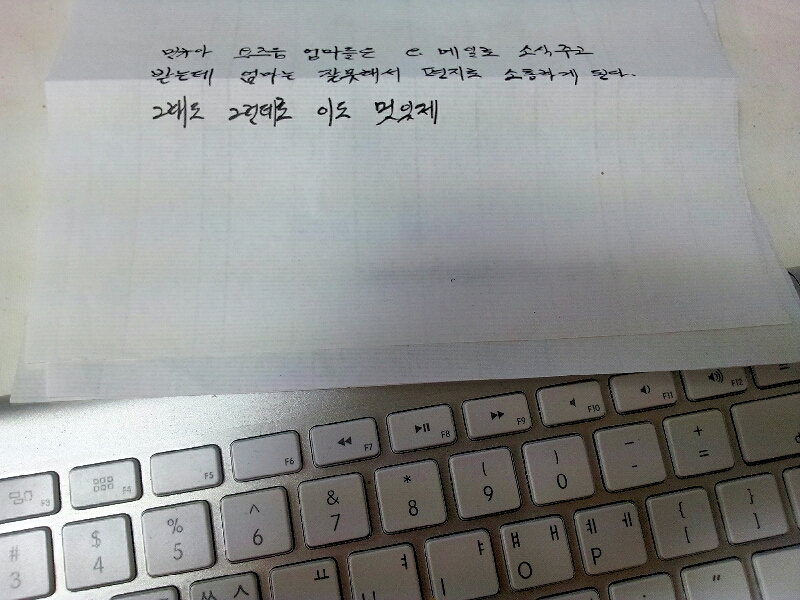 요즈음 엄마들은 e 메일로 소식주고
받는데 엄마는 잘못해서 편지로 소통하게 된다.
그래도 그런데로 이도 멋있제
F3 F4 F5 F6 F7 F8 F9 F10 F11 F12
# $ % ^ & * ( ) - + =
3 4 5 6 7 8 9 0 - =
ㅆ ㅅ ㅛ ㅕ ㅑ ㅒ ㅐ ㅖ ㅔ { }
I O P [ ]
"